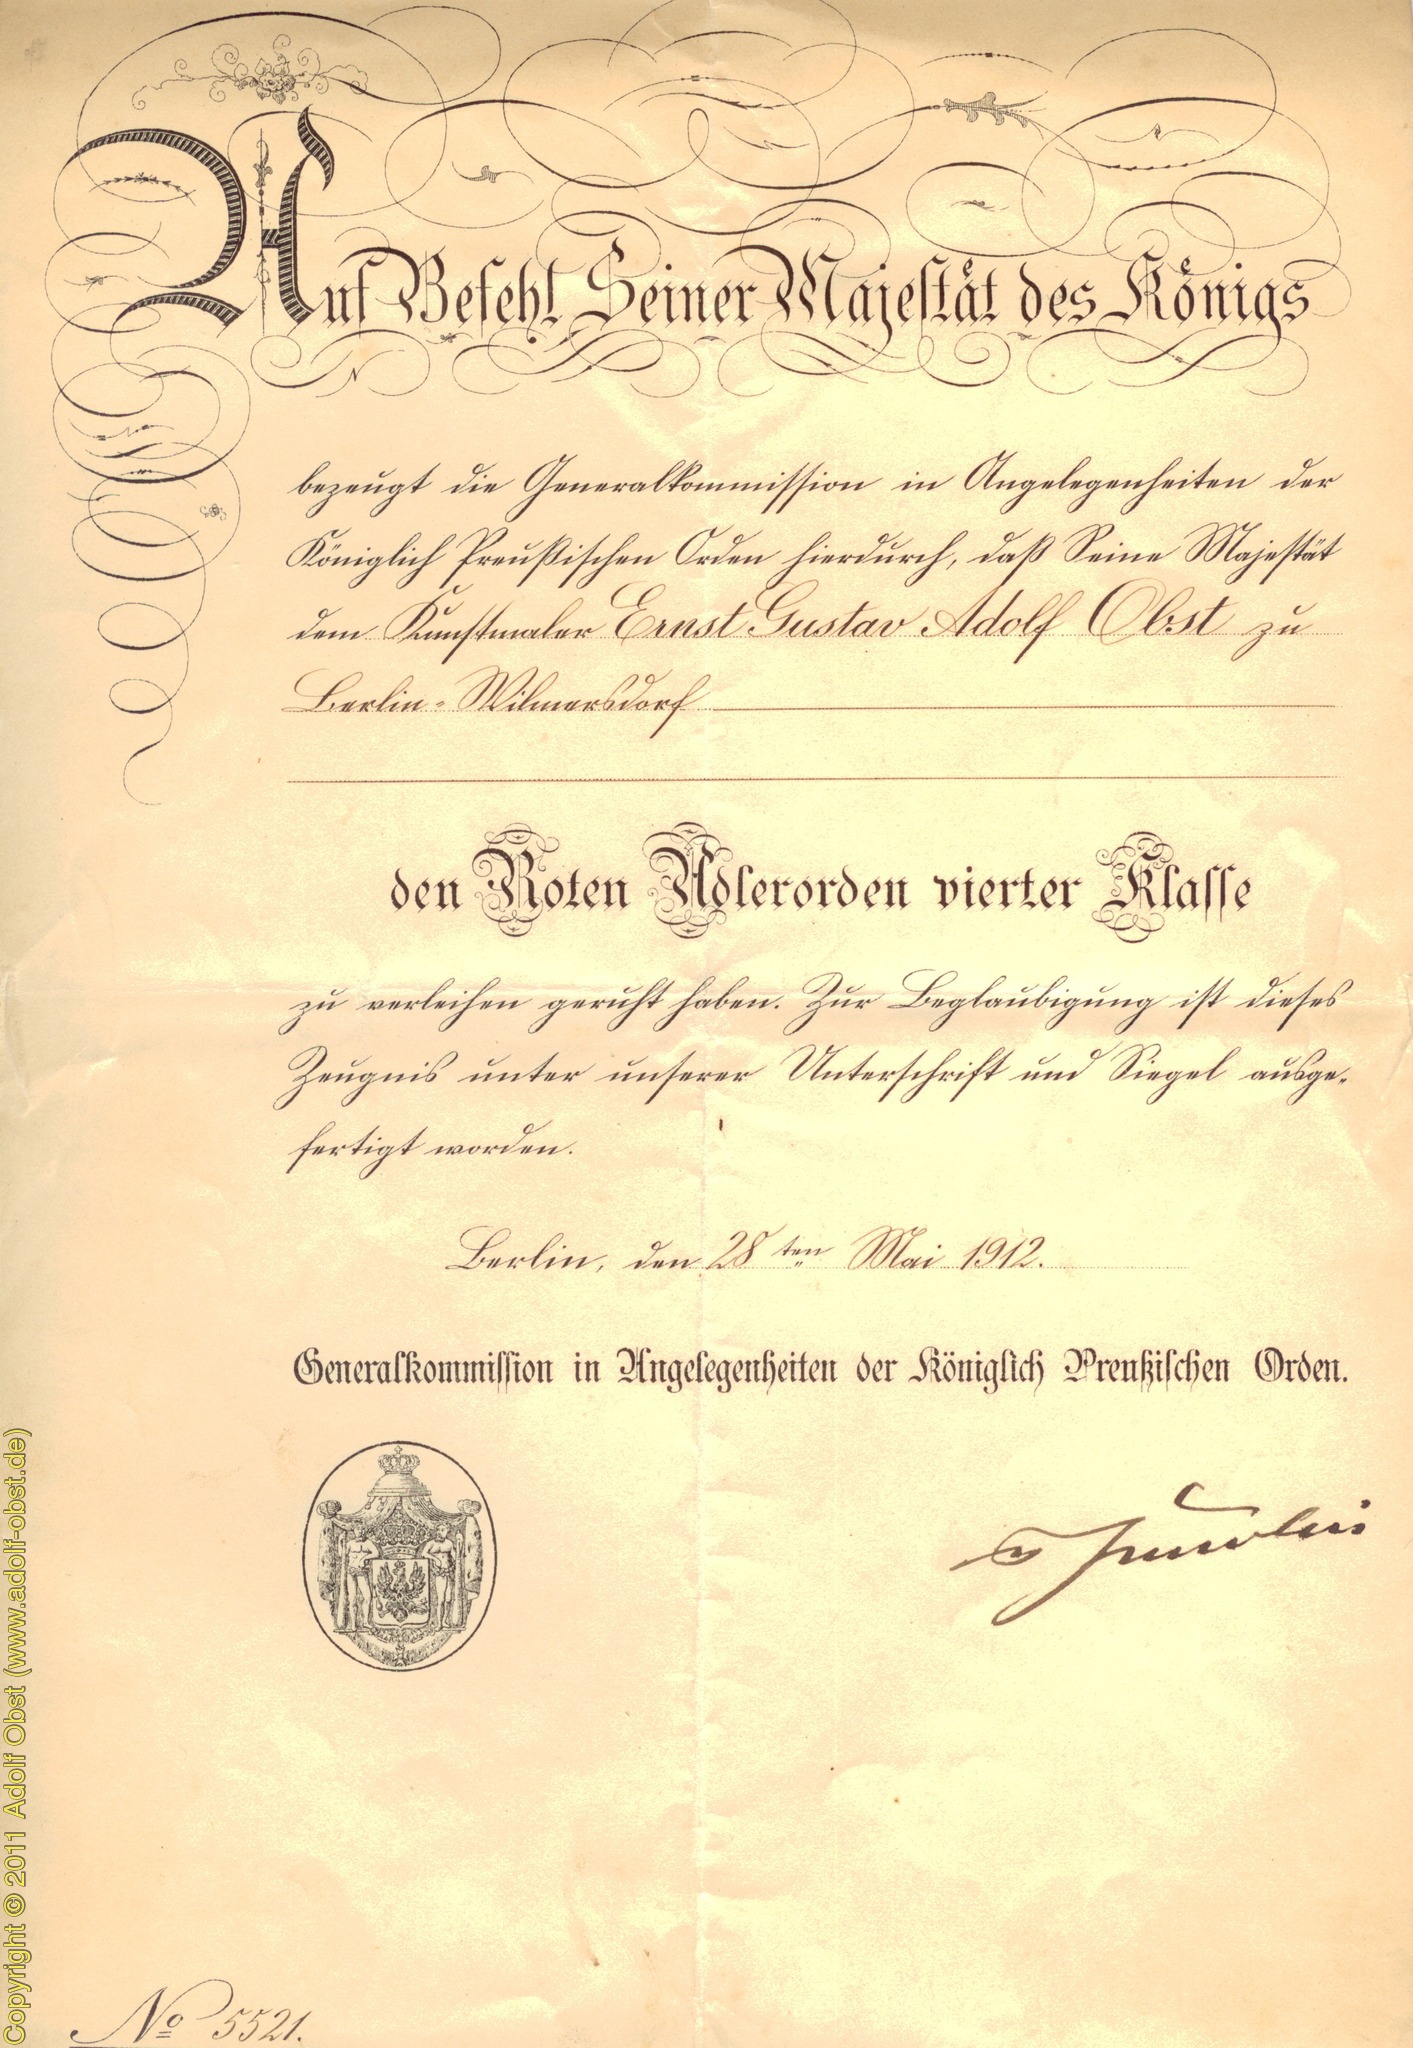 Auf Befehl Seiner Majestät des Königs
bezeugt die Generalkommission in Angelegenheiten der
Königlich Preußischen Orden hierdurch, daß Seine Majestät
dem Kunstmaler Ernst Gustav Adolf Obst zu
Berlin-Wilmersdorf
den Roten Adlerorden vierter Klasse
zu verleihen geruht haben. Zur Beglaubigung ist dieses
Zeugnis unter unserer Unterschrift und Siegel ausge-
fertigt worden.
Berlin, den 28ten Mai 1912.
Generalkommission in Angelegenheiten der Königlich Preußischen Orden.
No 5521.
Copyright © 2011 Adolf Obst (www.adolf-obst.de)